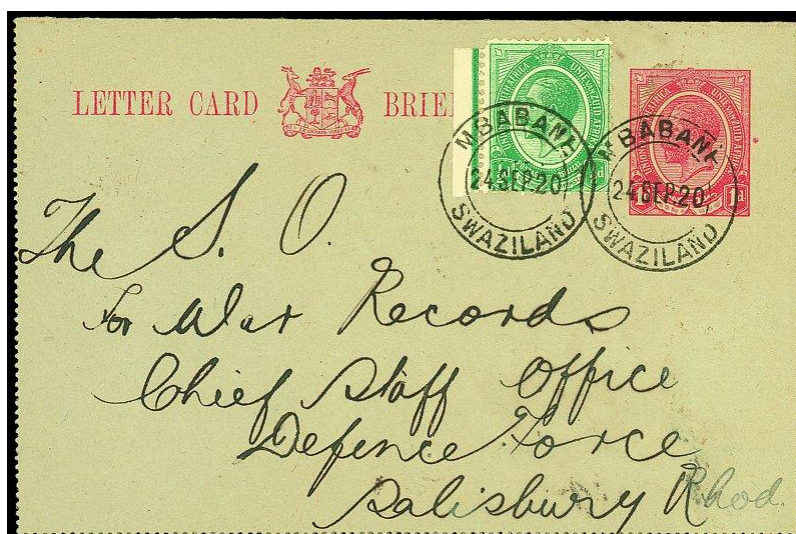 LETTER CARD BRIE
MBABANE
24 SEP 20
SWAZILAND
MBABANE
24 SEP 20
SWAZILAND
1d
The S. O.
for War Records
Chief Staff Office
Defence Force
Salisbury Rhod.